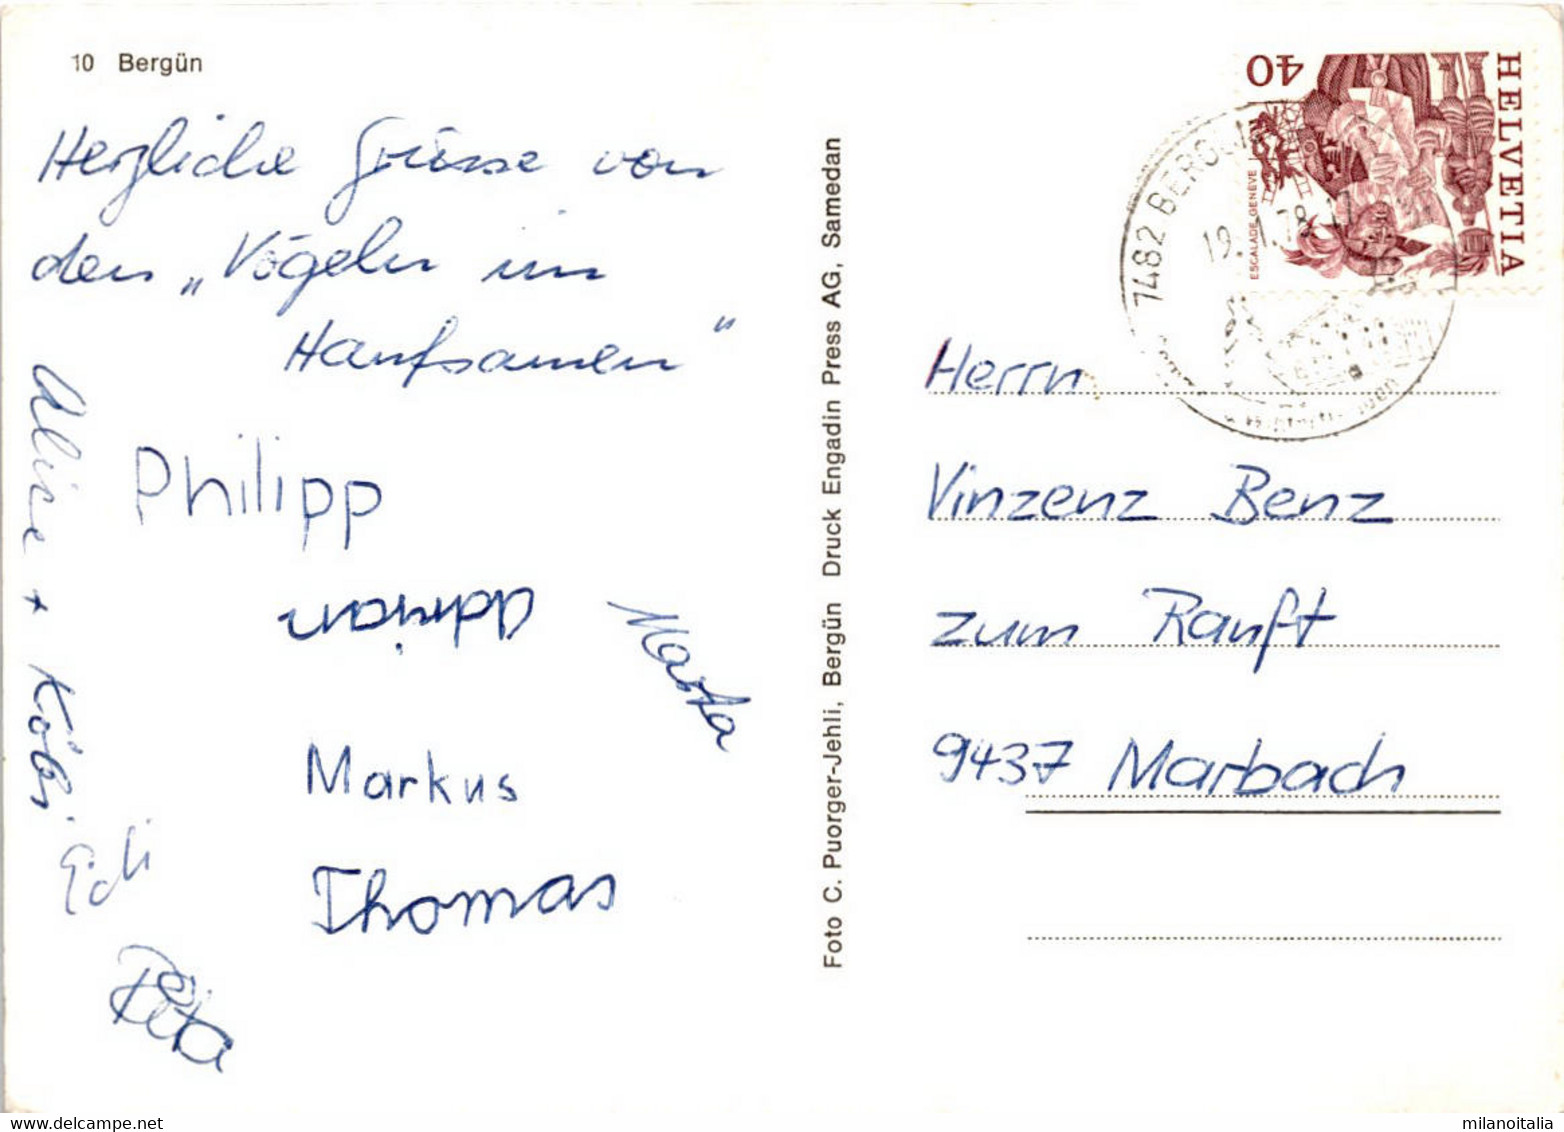 10 Bergün
Herzliche Grüsse von
den „Vögeln im
Hanfsamen"
Alice + Köbi
Philipp
Adrian
Marta
Markus
Thomas
Edi
Rita
Foto C. Puorger-Jehli, Bergün Druck Engadin Press AG, Samedan
HELVETIA
40
ESCALADE GENÈVE
7482 BERGÜN
19.1.78-11
Herrn
Vinzenz Benz
zum Ranft
9437 Marbach
www.delcampe.net
milanoitalia